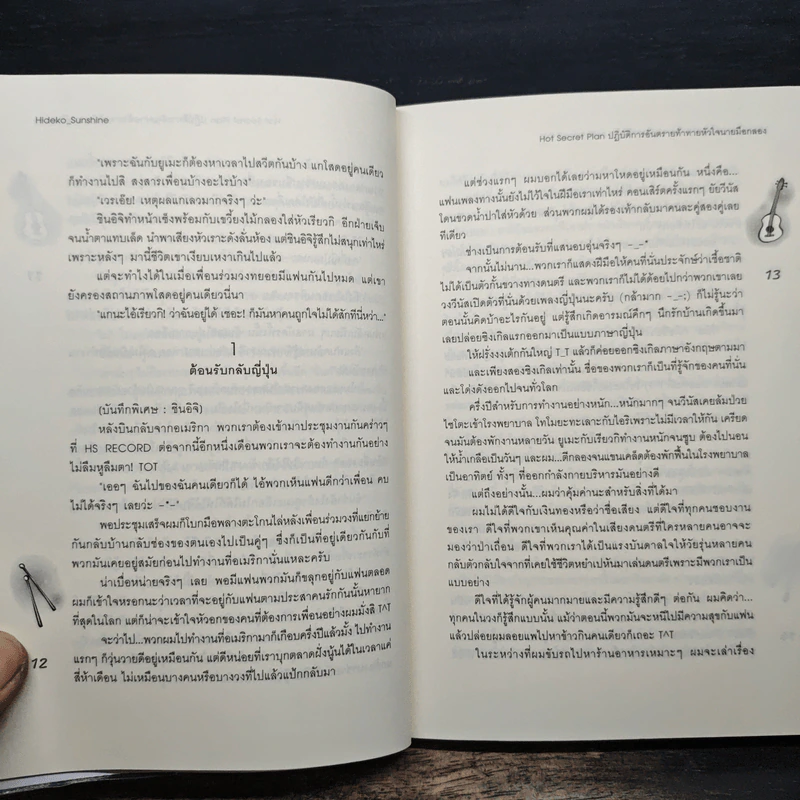 Hideko_Sunshine
"เพราะฉันกับยูเมะก็ต้องหาเวลาไปสวีตกันบ้าง แกโสดอยู่คนเดียว
ก็ทำงานไปสิ สงสารเพื่อนบ้างอะไรบ้าง"
"เวรเอ๊ย! เหตุผลแกเลวมากจริงๆ ว่ะ"
ชินอิจิทำหน้าเซ็งพร้อมกับเขวี้ยงไม้กลองใส่หัวเรียวกิ อีกฝ่ายเจ็บ
จนน้ำตาแทบเล็ด นำพาเสียงหัวเราะดังลั่นห้อง แต่ชินอิจิรู้สึกไม่สนุกเท่าไหร่
เพราะหลังๆ มานี้ชีวิตเขาเงียบเหงาเกินไปแล้ว
แต่จะทำไงได้ในเมื่อเพื่อนร่วมวงทยอยมีแฟนกันไปหมด แต่เขา
ยังครองสถานภาพโสดอยู่คนเดียวนี่นา
"แกนะไอ้เรียวกิ! ว่าฉันอยู่ได้ เชอะ! ก็มันหาคนถูกใจไม่ได้สักทีนี่หว่า..."
1
ต้อนรับกลับญี่ปุ่น
(บันทึกพิเศษ : ชินอิจิ)
หลังบินกลับจากอเมริกา พวกเราต้องเข้ามาประชุมงานกันคร่าวๆ
ที่ HS RECORD ต่อจากนี้อีกหนึ่งเดือนพวกเราจะต้องทำงานกันอย่าง
ไม่ลืมหูลืมตา! TOT
"เออๆ ฉันไปของฉันคนเดียวก็ได้ ไอ้พวกเห็นแฟนดีกว่าเพื่อน คบ
ไม่ได้จริงๆ เลยว่ะ -*-"
พอประชุมเสร็จผมก็โบกมือพลางตะโกนไล่หลังเพื่อนร่วมวงที่แยกย้าย
กันกลับบ้านกลับช่องของตนเองไปเป็นคู่ๆ ซึ่งก็เป็นที่อยู่เดียวกันกับที่
พวกมันเคยอยู่สมัยก่อนไปทำงานที่อเมริกานั่นแหละครับ
น่าเบื่อหน่ายจริงๆ เลย พอมีแฟนพวกมันก็ขลุกอยู่กับแฟนตลอด
ผมก็เข้าใจหรอกนะว่าเวลาที่จะอยู่กับแฟนตามประสาคนรักกันนั้นหายาก
ที่สุดในโลก แต่ก็น่าจะเข้าใจหัวอกของคนที่ต้องการเพื่อนอย่างผมมั่งสิ T^T
จะว่าไป...พวกผมไปทำงานที่อเมริกามาก็เกือบครึ่งปีแล้วมั้ง ไปทำงาน
แรกๆ ก็วุ่นวายดีอยู่เหมือนกัน แต่ดีหน่อยที่เราบุกตลาดฝั่งนู้นได้ในเวลาแค่
สี่ห้าเดือน ไม่เหมือนบางคนหรือบางวงที่ไปแล้วแป้กกลับมา
12
Hot Secret Plan ปฏิบัติการอันตรายท้าทายหัวใจนายมือกลอง
แต่ช่วงแรกๆ ผมบอกได้เลยว่ามหาโหดอยู่เหมือนกัน หนึ่งคือ...
แฟนเพลงทางนั้นยังไม่ไว้ใจในฝีมือเราเท่าไหร่ คอนเสิร์ตครั้งแรกๆ ยัยวีนัส
โดนขวดน้ำปาใส่หัวด้วย ส่วนพวกผมได้รองเท้ากลับมาคนละคู่สองคู่เลย
ทีเดียว
ช่างเป็นการต้อนรับที่แสนอบอุ่นจริงๆ -_-"
จากนั้นไม่นาน...พวกเราก็แสดงฝีมือให้คนที่นั่นประจักษ์ว่าเชื้อชาติ
ไม่ได้เป็นตัวกั้นขวางทางดนตรี และพวกเราก็ไม่ได้ด้อยไปกว่าพวกเขาเลย
วงวีนัสเปิดตัวที่นั่นด้วยเพลงญี่ปุ่นนะครับ (กล้ามาก -_-;) ก็ไม่รู้นะว่า
ตอนนั้นคิดบ้าอะไรกันอยู่ แต่รู้สึกเกิดอารมณ์คึกๆ นึกรักบ้านเกิดขึ้นมา
เลยปล่อยซิงเกิลแรกออกมาเป็นแบบภาษาญี่ปุ่น
ให้ฝรั่งงงเต้กกันใหญ่ T_T แล้วก็ค่อยออกซิงเกิลภาษาอังกฤษตามมา
และเพียงสองซิงเกิลเท่านั้น ชื่อของพวกเราก็เป็นที่รู้จักของคนที่นั่น
และโด่งดังออกไปจนทั่วโลก
ครึ่งปีสำหรับการทำงานอย่างหนัก...หนักมากๆ จนวีนัสเคยล้มป่วย
ไซโตะเข้าโรงพยาบาล โทโมยะทะเลาะกับไอริเพราะไม่มีเวลาให้กัน เครียด
จนมันต้องพักงานหลายวัน ยูเมะกับเรียวกิทำงานหนักจนซูบ ต้องไปนอน
ให้น้ำเกลืออยู่เป็นวันๆ และผม...ตีกลองจนแขนเคล็ดต้องพักฟื้นในโรงพยาบาล
เป็นอาทิตย์ ทั้งๆ ที่ออกกำลังกายบริหารมันอย่างดี
แต่ถึงอย่างนั้น...ผมว่าคุ้มค่านะสำหรับสิ่งที่ได้มา
ผมไม่ได้ดีใจกับเงินทองหรือว่าชื่อเสียง แต่ดีใจที่ทุกคนชอบงาน
ของเรา ดีใจที่พวกเขาเห็นคุณค่าในเสียงดนตรีที่ใครหลายคนอาจจะ
มองว่าป่าเถื่อน ดีใจที่พวกเราได้เป็นแรงบันดาลใจให้วัยรุ่นหลายคน
กลับตัวกลับใจจากที่เคยใช้ชีวิตหยำเปหันมาเล่นดนตรีเพราะมีพวกเราเป็น
แบบอย่าง
ดีใจที่ได้รู้จักผู้คนมากมายและมีความรู้สึกดีๆ ต่อกัน ผมคิดว่า...
ทุกคนในวงก็รู้สึกแบบนั้น แม้ว่าตอนนี้พวกมันจะหนีไปมีความสุขกับแฟน
แล้วปล่อยผมลอยแพไปหาข้าวกินคนเดียวก็เถอะ T^T
ในระหว่างที่ผมขับรถไปหาร้านอาหารเหมาะๆ ผมจะเล่าเรื่อง
13